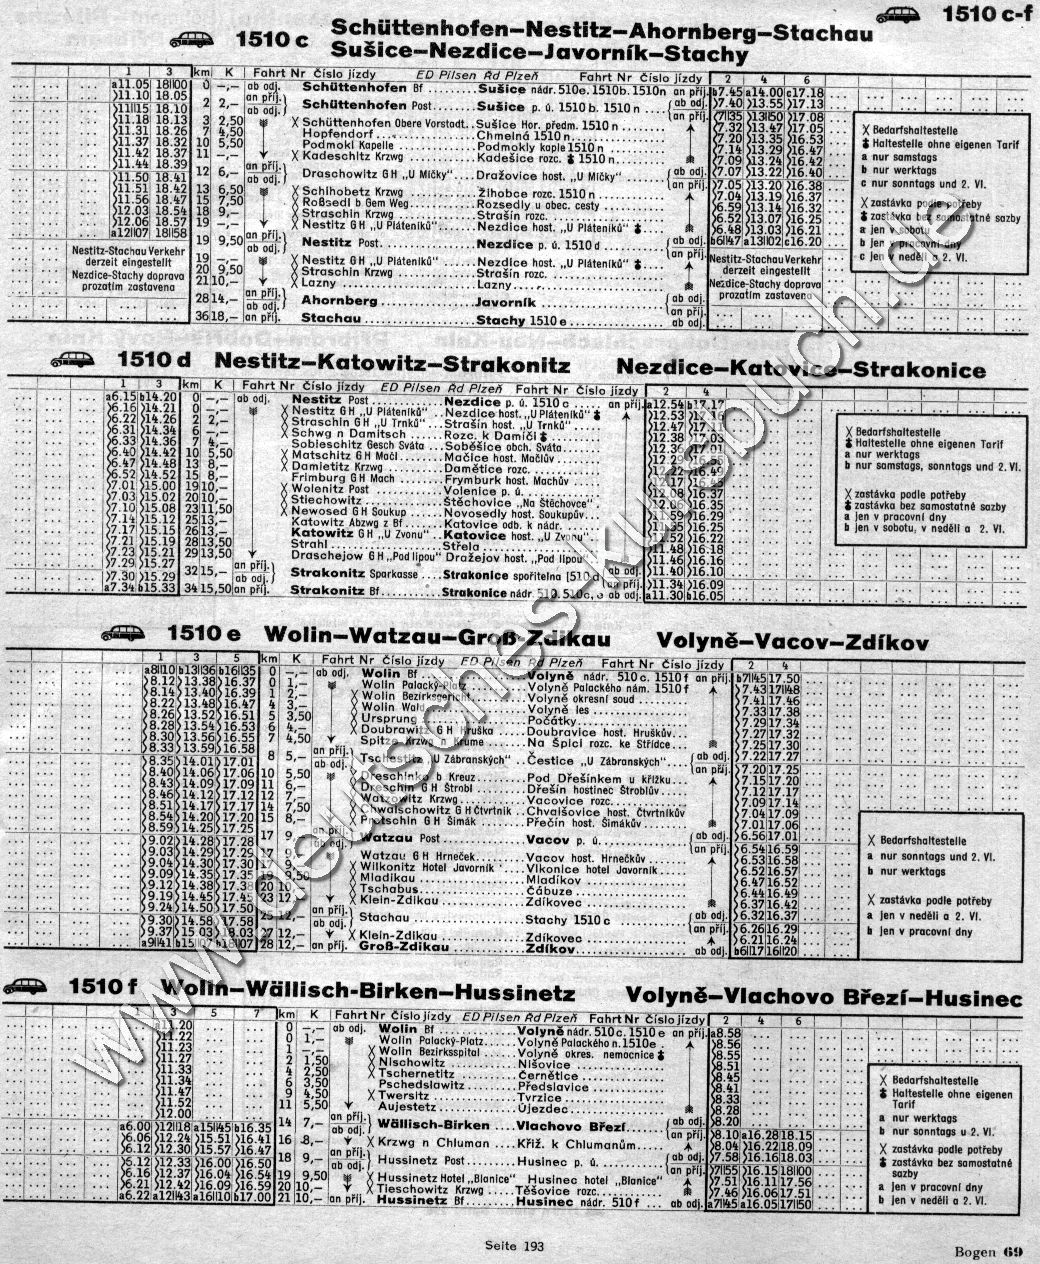 1510 c-f
1510 c Schüttenhofen–Nestitz–Ahornberg–Stachau
Sušice–Nezdice–Javorník–Stachy
1 3 km K Fahrt Nr Číslo jízdy ED Pilsen Řd Plzeň Fahrt Nr Číslo jízdy 2 4 6
a11.05 18II00 0 –,– ab odj. Schüttenhofen Bf Sušice nádr. 510e. 1510b. 1510n an příj. b7.45 a14.00 c17.18
11.10 18.05 2 2,– an příj. Schüttenhofen Post Sušice p. ú. 1510 b. 1510 n ab odj. 7.40 13.55 17.13
11II15 18.10 ab odj. an příj. 7II35 13II50 17.08
11.18 18.13 3 2,50 X Schüttenhofen Obere Vorstadt Sušice Hor. předm. 1510 n 7.32 13.47 17.05
11.31 18.26 7 4,50 Hopfendorf Chmelná 1510 n 7.20 13.35 16.53
11.37 18.32 10 5,50 Podmokl Kapelle Podmokly kaple 1510 n 7.14 13.29 16.47
11.42 18.37 11 –,– X Kadeschitz Krzwg Kadešice rozc. 1510 n 7.09 13.24 16.42
11.44 18.39 12 6,– an příj. Draschowitz G H „U Mičky" Dražovice host. „U Mičky" ab odj. 7.07 13.22 16.40
11.50 18.41 ab odj. an příj. 7.05 13.20 16.38
11.51 18.42 13 6,50 X Schihobetz Krzwg Žihobce rozc. 1510 n 7.04 13.19 16.37
11.56 18.47 15 7,50 X Roßsedl b Gem Weg Rozsedly u obec. cesty 6.59 13.14 16.32
12.03 18.54 18 9,– X Straschin Krzwg Strašín rozc. 6.52 13.07 16.25
12.06 18.57 19 –,– X Nestitz G H „U Pláteníků" Nezdice host. „U Pláteníků" 6.48 13.03 16.21
a12II07 18II58 19 9,50 an příj. ab odj. Nestitz Post. Nezdice p. ú. 1510 d ab odj. an příj. b6II47 a13II02 c16.20
19 –,– X Nestitz G H „U Pláteníků" Nezdice host. „U Pláteníků"
20 9,50 X Straschin Krzwg Strašín rozc.
21 10,– X Lazny Lazny
28 14,– an příj. ab odj. Ahornberg Javorník ab odj. an příj.
36 18,– an příj. Stachau Stachy 1510 e ab odj.
Nestitz-Stachau Verkehr
derzeit eingestellt
Nezdice-Stachy doprava
prozatím zastavena
Nestitz-Stachau Verkehr
derzeit eingestellt
Nezdice-Stachy doprava
prozatím zastavena
X Bedarfshaltestelle
Haltestelle ohne eigenen Tarif
a nur samstags
b nur werktags
c nur sonntags und 2. VI.
X zastávka podle potřeby
zastávka bez samostatné sazby
a jen v sobotu
b jen v pracovní dny
c jen v neděli a 2. VI.
1510 d Nestitz–Katowitz–Strakonitz Nezdice–Katovice–Strakonice
1 3 km K Fahrt Nr Číslo jízdy ED Pilsen Řd Plzeň Fahrt Nr Číslo jízdy 2 4
a6.15 b14.20 0 –,– ab odj. Nestitz Post Nezdice p. ú. 1510 c an příj. a12.54 b17.17
6.16 14.21 0 –,– X Nestitz G H „U Pláteníků" Nezdice host. „U Pláteníků" 12.53
6.22 14.26 2 2,– X Straschin G H „U Trnků" Strašín host. „U Trnků" 12.47
6.31 14.34 6 –,– X Schwg n Damitsch Rozc. k Damíči 12.38 17.03
6.33 14.36 7 4,– Sobieschitz Gesch Sváta Soběšice obch. Sváta
6.40 14.42 10 5,50 X Matschitz G H Mačl Mačice host. Mačlův
6.47 14.48 13 8,– X Damietitz Krzwg Damětice rozc.
6.52 14.52 15 8,– Frimburg G H Mach Frymburk host. Machův
7.01 15.00 19 10,– X Wolenitz Post Volenice p. ú. 16.37
7.03 15.02 20 10,– X Stiechowitz Štěchovice „Na Štěchovce" 16.35
7.10 15.08 23 11,50 X Newosed G H Soukup Novosedly host. Soukupův 16.29
7.14 15.12 25 13,– Katowitz Abzwg z Bf Katovice odb. k nádr. 16.25
7.17 15.15 26 13,– Katowitz G H „U Zvonu" Katovice host. „U Zvonu" 16.22
7.21 15.19 28 13,50 Strahl Střela 11.48 16.18
7.23 15.21 29 13,50 Draschejow G H „Pod lipou" Dražejov host. „Pod lipou" 11.46 16.16
7.29 15.27 32 15,– an příj. Strakonitz Sparkasse Strakonice spořitelna ab odj. 11.40 16.10
7.30 15.29 ab odj. an příj. 11.34 16.09
a7.34 b15.33 34 15,50 an příj. Strakonitz Bf Strakonice nádr. ab odj. a11.30 b16.05
X Bedarfshaltestelle
Haltestelle ohne eigenen Tarif
a nur werktags
b nur samstags, sonntags und 2. VI.
X zastávka podle potřeby
zastávka bez samostatné sazby
a jen v pracovní dny
b jen v sobotu, v neděli a 2. VI.
1510 e Wolin–Watzau–Groß-Zdikau Volyně–Vacov–Zdíkov
1 3 5 km K Fahrt Nr Číslo jízdy ED Pilsen Řd Plzeň Fahrt Nr Číslo jízdy 2 4
a8II10 b13II36 b16II35 0 –,– ab odj. Wolin Bf Volyně nádr. 510 c. 1510 f an příj. b7II45 17.50
8.12 13.38 16.37 0 1,– Wolin Palacký-Platz Volyně Palackého nám. 1510 f 7.43 17II48
8.14 13.40 16.39 1 2,– X Wolin Bezirksgericht Volyně okresní soud 7.41 17.46
8.22 13.48 16.47 4 3,– X Wolin Wald Volyně les 7.33 17.38
8.26 13.52 16.51 5 3,50 X Ursprung Počátky 7.29 17.34
8.28 13.54 16.53 6 4,– X Doubrawitz G H Hruška Doubravice host. Hruškův 7.27 17.32
8.30 13.56 16.55 7 4,50 Spitze Krzwg n Krume Na Špici rozc. ke Střídce 7.25 17.30
8.33 13.59 16.58 8 5,– an příj. Tschestitz „U Zábranských" Čestice „U Zábranských" ab odj. 7.22 17.27
8.35 14.01 17.01 ab odj. an příj. 7.20 17.25
8.40 14.06 17.06 10 5,50 X Dreschinka b Kreuz Pod Dřešínkem u křížku 7.15 17.20
8.43 14.09 17.09 11 6,– X Dreschin G H Štrobl Dřešín hostinec Štroblův 7.12 17.17
8.46 14.12 17.12 12 7,– X Watzowitz Krzwg Vacovice rozc. 7.09 17.14
8.51 14.17 17.17 14 7,50 X Chwalschowitz G H Čtvrtník Chvalšovice host. Čtvrtníkův 7.04 17.09
8.54 14.20 17.20 15 8,– X Prtschin G H Šimák Přečín host. Šimákův 7.01 17.06
8.59 14.25 17.25 17 9,– an příj. Watzau Post Vacov p. ú. ab odj. 6.56 17.01
9.02 14.28 17.28 ab odj. an příj. 6.54 16.59
9.03 14.29 17.29 17 Watzau G H Hrneček Vacov host. Hrnečkův 6.53 16.58
9.04 14.30 17.30 X Wilkonitz Hotel Javorník Vlkonice hotel Javorník 6.52 16.57
9.09 14.35 17.35 19 9,50 X Mladikau Mladíkov 6.47 16.52
9.12 14.38 17.38 20 10,– X Tschabus Čábuze 6.44 16.49
9.19 14.45 17.45 23 12,– X Klein-Zdikau Zdíkovec 6.37 16.42
9.24 14.50 17.50 25 12,– an příj. Stachau Stachy 1510 c ab odj. 6.32 16.37
9.30 14.58 17.58 ab odj. an příj. 6.26 16.29
9.37 15.03 18.03 27 12,– X Klein-Zdikau Zdíkovec 6.21 16.24
a9II41 b15II07 b18II07 28 12,– an příj. Groß-Zdikau Zdíkov ab odj. b6II17 16II20
X Bedarfshaltestelle
a nur sonntags und 2. VI.
b nur werktags
X zastávka podle potřeby
a jen v neděli a 2. VI.
b jen v pracovní dny
1510 f Wolin–Wällisch-Birken–Hussinetz Volyně–Vlachovo Březí–Husinec
3 5 7 km K Fahrt Nr Číslo jízdy ED Pilsen Řd Plzeň Fahrt Nr Číslo jízdy 2 4 6
a11.20 0 –,– ab odj. Wolin Bf Volyně nádr. 510 c. 1510 e an příj. a8.58
11.22 0 1,– Wolin Palacký-Platz Volyně Palackého n. 1510e 8.56
11.23 1 –,– X Wolin Bezirksspital Volyně okres. nemocnice 8.55
11.27 2 1,50 X Nischowitz Nišovice 8.51
11.33 4 2,50 X Tschernetitz Černětice 8.45
11.34 6 3,50 Pschedslawitz Předslavice 8.41
11.47 9 4,50 X Twersitz Tvrzice 8.33
11.52 11 5,50 Aujestetz Újezdec 8.28
12.00 14 7,– an příj. Wällisch-Birken Vlachovo Březí ab odj. 8.20
a6.00 12II18 a15II45 b16.35 ab odj. an příj. 8.10 a16.28 18.15
6.06 12.24 15.51 16.41 16 8,– X Krzwg n Chluman Křiž. k Chlumanům 8.04 16.22 18.09
6.12 12.30 15.57 16.47 18 9,– an příj. Hussinetz Post Husinec p. ú. ab odj. 7.58 16.16 18.03
6.12 12.33 16.00 16.50 ab odj. an příj. 7II55 16.15 18II00
6.16 12.37 16.04 16.54 19 9,50 X Hussinetz Hotel „Blanice" Husinec hotel „Blanice" 7.51 16.11 17.56
6.21 12.42 16.09 16.59 20 10,– X Tieschowitz Krzwg Těšovice rozc. 7.46 16.06 17.51
a6.22 a12II43 a16II10 b17.00 21 10,– an příj. Hussinetz Bf Husinec nádr. 510 f ab odj. a7II45 a16.05 17II50
X Bedarfshaltestelle
Haltestelle ohne eigenen
Tarif
a nur werktags
b nur sonntags u 2. VI.
X zastávka podle potřeby
zastávka bez samostatné
sazby
a jen v pracovní dny
b jen v neděli a 2. VI.
Seite 193
Bogen 69
www.deutsches-kursbuch.de